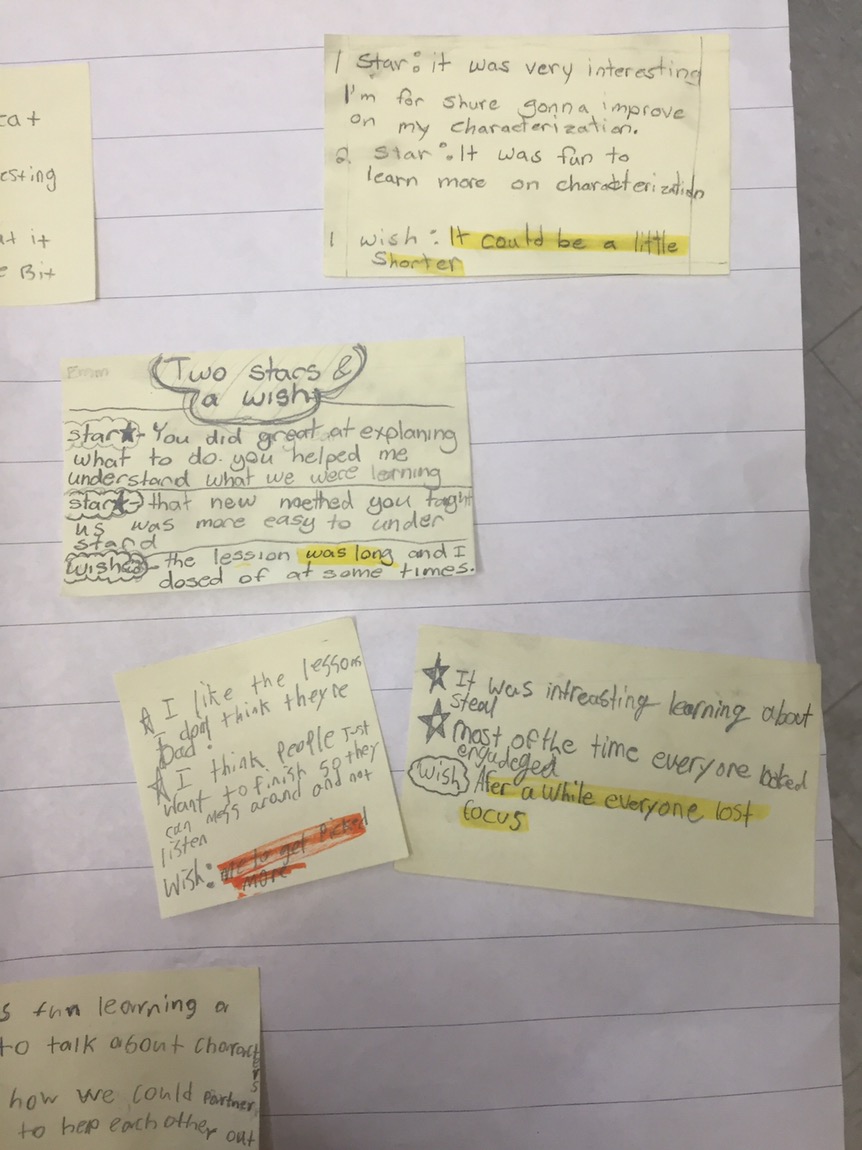 cat
esting
at it
e Bit
1 Star: it was very interesting
I'm for shure gonna improve
on my characterization.
2 Star: It was fun to
learn more on characterization
1 wish: It could be a little
Shorter
Two stars &
a wish
star★- You did great at explaning
what to do. you helped me
understand what we were lerning
star★- that new moethed you taght
us was more easy to under
stand
wish - the lession was long and I
dosed of at some times.
☆ I like the lessons
I dont think they're
bad!
☆ I think people Just
want to finish so they
can mess around and not
listen
Wish: me to get Picked
more
★ It was intreasting learning about
steal
★ most of the time everyone looked
engadeged
Wish After a while everyone lost
focus
s fun learning a
to talk about characters
how we could partner
to help each other out